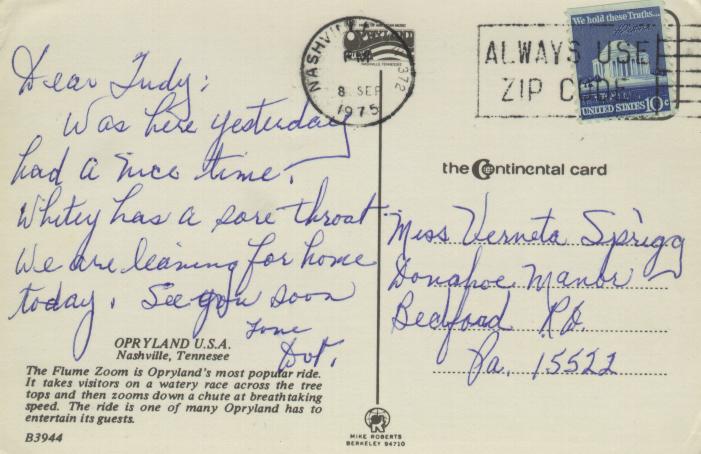 Dear Judy;
Was here yesterday
had a nice time.
Whitey has a sore throat
We are leaving for home
today. See you soon
Love
Dot.
OPRYLAND U.S.A.
Nashville, Tennesee
The Flume Zoom is Opryland's most popular ride.
It takes visitors on a watery race across the tree
tops and then zooms down a chute at breathtaking
speed. The ride is one of many Opryland has to
entertain its guests.
B3944
NASHVILLE
OPRYLAND
NASHVILLE, TENNESSEE
PM
8 SEP
1975
372
ALWAYS USE
ZIP CODE
We hold these Truths...
UNITED STATES 10c
the Continental card
Miss Verneta Sprigg
Donahoe Manor
Bedford R.D.
Pa. 15522
MIKE ROBERTS
BERKELEY 94710